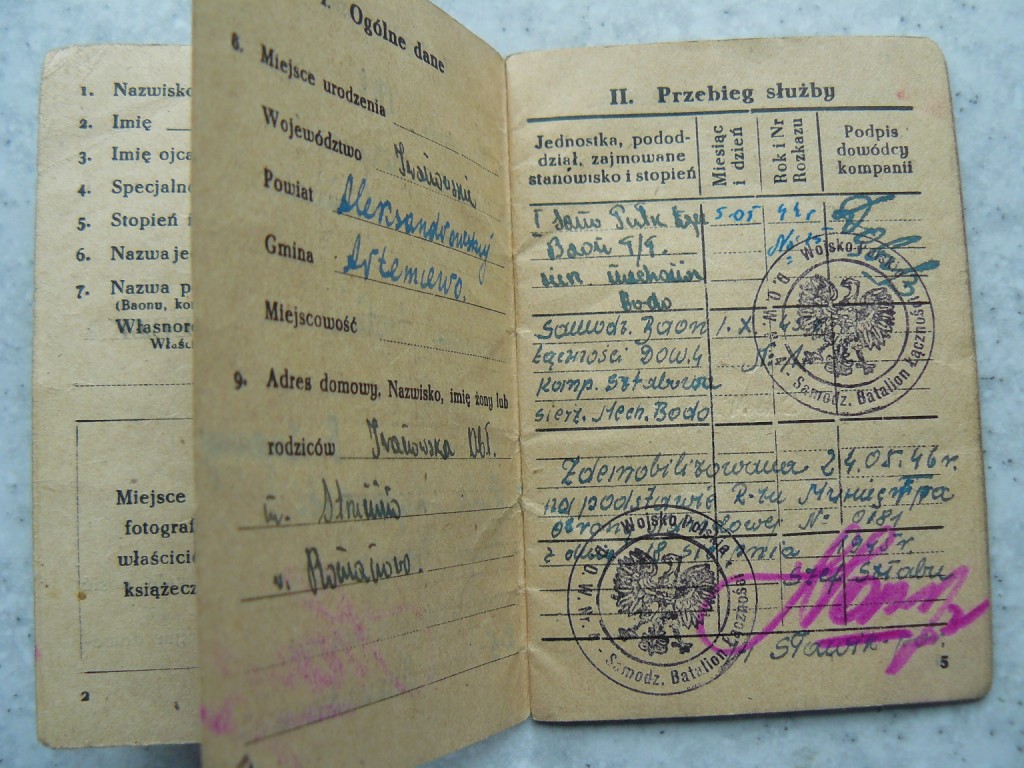 1. Nazwisko
2. Imię
3. Imię ojca
4. Specjaln
5. Stopień i
6. Nazwa je
7. Nazwa p
(Baonu, ko
Własnor
Właśc
Miejsce
fotograf
właścici
książecz
2
I. Ogólne dane
8. Miejsce urodzenia
Województwo Iwanowskie
Powiat Aleksandrowskij
Gmina Artemiewo.
Miejscowość
9. Adres domowy, Nazwisko, imię żony lub
rodziców Iwanowska Obł.
w. Romanowo.
II. Przebieg służby
Jednostka, podod-
dział, zajmowane
stanowisko i stopień
Miesiąc
i dzień
Rok i Nr
Rozkazu
Podpis
dowódcy
kompanii
I Samo Pułk 5.05 44 r
Baon
sierż. mechanik
Bodo
Samodz. Baon 1.X 45 r
Łączności DOW.4 N. X
Komp. Sztabowa
sierż. Mech. Bodo
Wojsko Polskie
D.O.W. Nr 4
Samodz. Batalion Łączności
Zdemobilizowana 24.05.46 r.
na podstawie R-zu Ministra
obrony Narodowej No 0181
z dnia 18 sierpnia 1945 r.
Szef Sztabu
Sławik
Wojsko Polskie
D.O.W. Nr 4
Samodz. Batalion Łączności
5